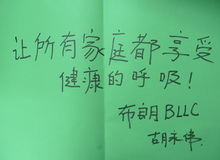 让所有家庭都享受
健康的呼吸！
布朗BLLC
胡永伟